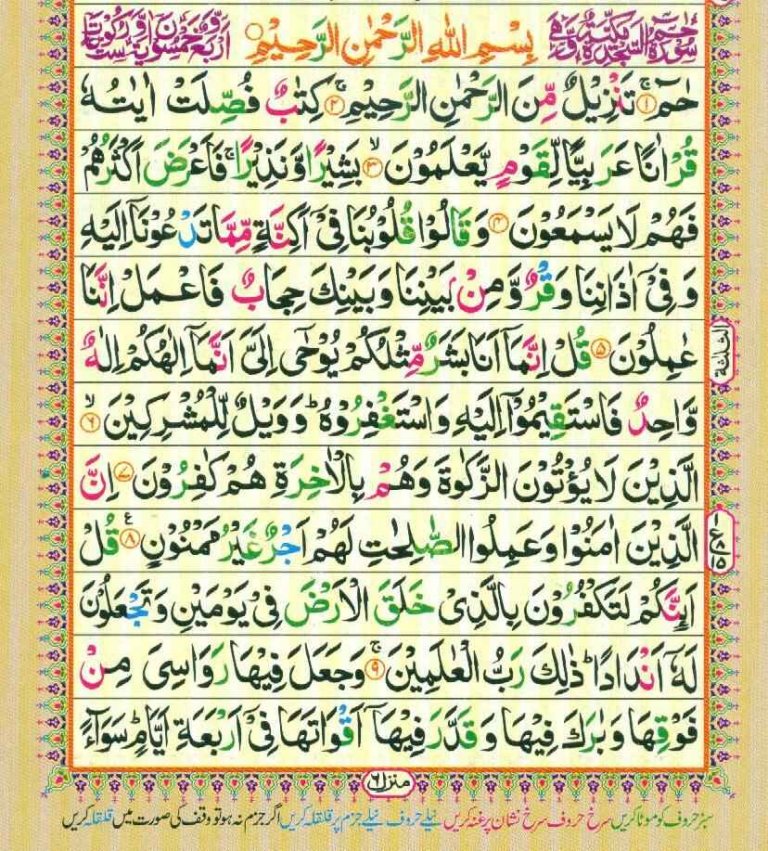 سورة حم السجدة مكية وهي
بسم الله الرحمن الرحيم
اربع وخمسون اية وست ركوعات
حٰمٓ ۚ‏﴿۱﴾ تَنْزِيْلٌ مِّنَ الرَّحْمٰنِ الرَّحِيْمِ ۚ‏﴿۲﴾ كِتٰبٌ فُصِّلَتْ اٰيٰتُهٗ
قُرْاٰنًا عَرَبِيًّا لِّقَوْمٍ يَّعْلَمُوْنَ ۙ‏﴿۳﴾ بَشِيْرًا وَّنَذِيْرًا ۚ فَاَعْرَضَ اَكْثَرُهُمْ
فَهُمْ لَا يَسْمَعُوْنَ ﴿۴﴾ وَقَالُوْا قُلُوْبُنَا فِىْۤ اَكِنَّةٍ مِّمَّا تَدْعُوْنَاۤ اِلَيْهِ
وَفِىْۤ اٰذَانِنَا وَقْرٌ وَّمِنْۢ بَيْنِنَا وَبَيْنِكَ حِجَابٌ فَاعْمَلْ اِنَّنَا
عٰمِلُوْنَ ﴿۵﴾ قُلْ اِنَّمَاۤ اَنَا بَشَرٌ مِّثْلُكُمْ يُوْحٰٓى اِلَىَّ اَنَّمَاۤ اِلٰهُكُمْ اِلٰهٌ
وَّاحِدٌ فَاسْتَقِيْمُوْۤا اِلَيْهِ وَاسْتَغْفِرُوْهُ ؕ وَوَيْلٌ لِّلْمُشْرِكِيْنَ ۙ‏﴿۶﴾
الَّذِيْنَ لَا يُؤْتُوْنَ الزَّكٰوةَ وَهُمْ بِالْاٰخِرَةِ هُمْ كٰفِرُوْنَ ﴿۷﴾ اِنَّ
الَّذِيْنَ اٰمَنُوْا وَعَمِلُوا الصّٰلِحٰتِ لَهُمْ اَجْرٌ غَيْرُ مَمْنُوْنٍ ﴿۸﴾ ع قُلْ
اَئِنَّكُمْ لَتَكْفُرُوْنَ بِالَّذِىْ خَلَقَ الْاَرْضَ فِىْ يَوْمَيْنِ وَتَجْعَلُوْنَ
لَهٗۤ اَنْدَادًا ؕ ذٰلِكَ رَبُّ الْعٰلَمِيْنَ ۚ‏﴿۹﴾ وَجَعَلَ فِيْهَا رَوَاسِىَ مِنْ
فَوْقِهَا وَبٰرَكَ فِيْهَا وَقَدَّرَ فِيْهَاۤ اَقْوَاتَهَا فِىْۤ اَرْبَعَةِ اَيَّامٍ ؕ سَوَآءً
الثلثة
منزل ۶
سبز حروف کو موٹا کریں سرخ حروف سرخ نشان پر غنہ کریں نیلے حروف نیلے جزم پر قلقلہ کریں اگر جزم نہ ہو تو وقف کی صورت میں قلقلہ کریں